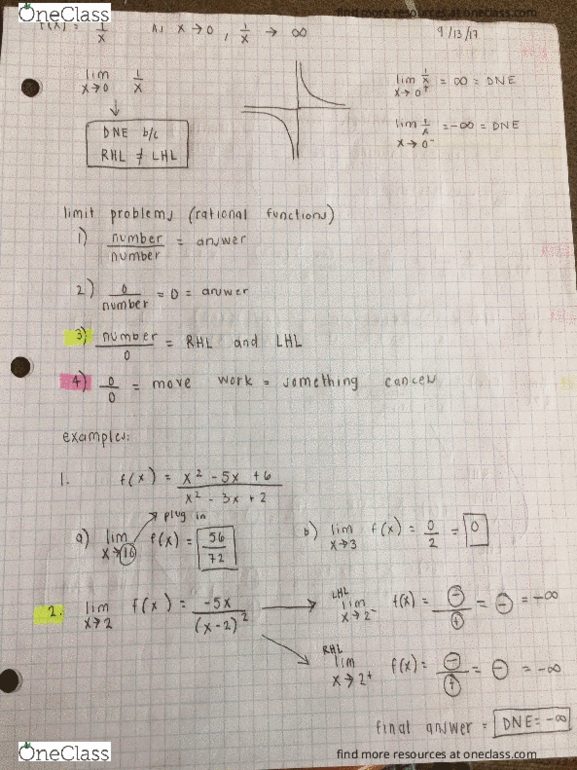 OneClass
find more resources at oneclass.com
f(x) = 1/x    As x → 0 , 1/x → ∞    9/13/17
lim x→0 1/x
lim x→0⁺ 1/x = ∞ = DNE
lim x→0⁻ 1/x = -∞ = DNE
DNE b/c
RHL ≠ LHL
limit problems (rational functions)
1) number/number = answer
2) 0/number = 0 = answer
3) number/0 = RHL and LHL
4) 0/0 = more work = something cancels
examples:
1. f(x) = x² - 5x + 6 / x² - 3x + 2
plug in
a) lim x→16 f(x) = 56/72
b) lim x→3 f(x) = 0/2 = 0
2. lim x→2 f(x) = -5x/(x-2)²
LHL
lim x→2⁻ f(x) = ⊖/⊕ = ⊖ = -∞
RHL
lim x→2⁺ f(x) = ⊖/⊕ = ⊖ = -∞
final answer = DNE = -∞
OneClass
find more resources at oneclass.com